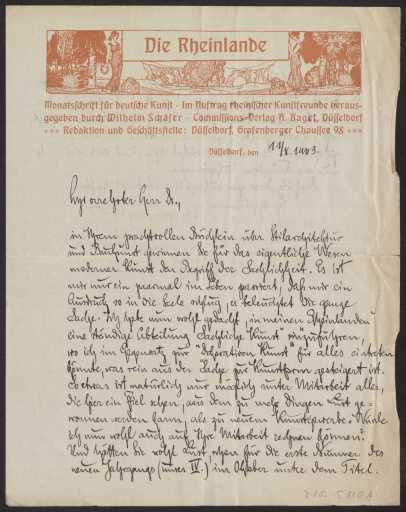 Die Rheinlande
Monatsschrift für deutsche Kunst · Im Auftrag rheinischer Kunstfreunde heraus-
gegeben durch Wilhelm Schäfer · Commissions-Verlag A. Bagel, Düsseldorf
Redaktion und Geschäftsstelle: Düsseldorf, Grafenberger Chaussee 98
Düsseldorf, den 1903.
Herr Dr.,
in Ihrem prachtvollen Büchlein über Stilarchitektur
und Baukunst gewinnen Sie für das eigentliche Wesen
moderner Kunst den Begriff der Sachlichkeit. Es ist
mir nur ein paarmal im Leben passiert, daß mir ein
Ausdruck so in die Seele schlug, er beleuchtet die ganze
Sache. Ich habe nun wohl gedacht, in meinen "Rheinlanden"
eine ständige Abteilung "Sachliche Kunst" einzuführen,
wo ich im Gegensatz zur "Dekorativen Kunst" für alles eintreten
könnte, was rein aus der Sache zur Kunstform gesteigert ist.
So etwas ist natürlich nur möglich unter Mitarbeit aller,
die hier ein Ziel sehen, aus dem zu mehr Dingen Lust ge-
wonnen werden kann, als zu neuem Kunstgewerbe. Würde
ich nun wohl auch auf Ihre Mitarbeit rechnen können?
Und hätten Sie wohl Lust, schon für die erste Nummer des
neuen Jahrgangs (unser IV.) im Oktober unter dem Titel: